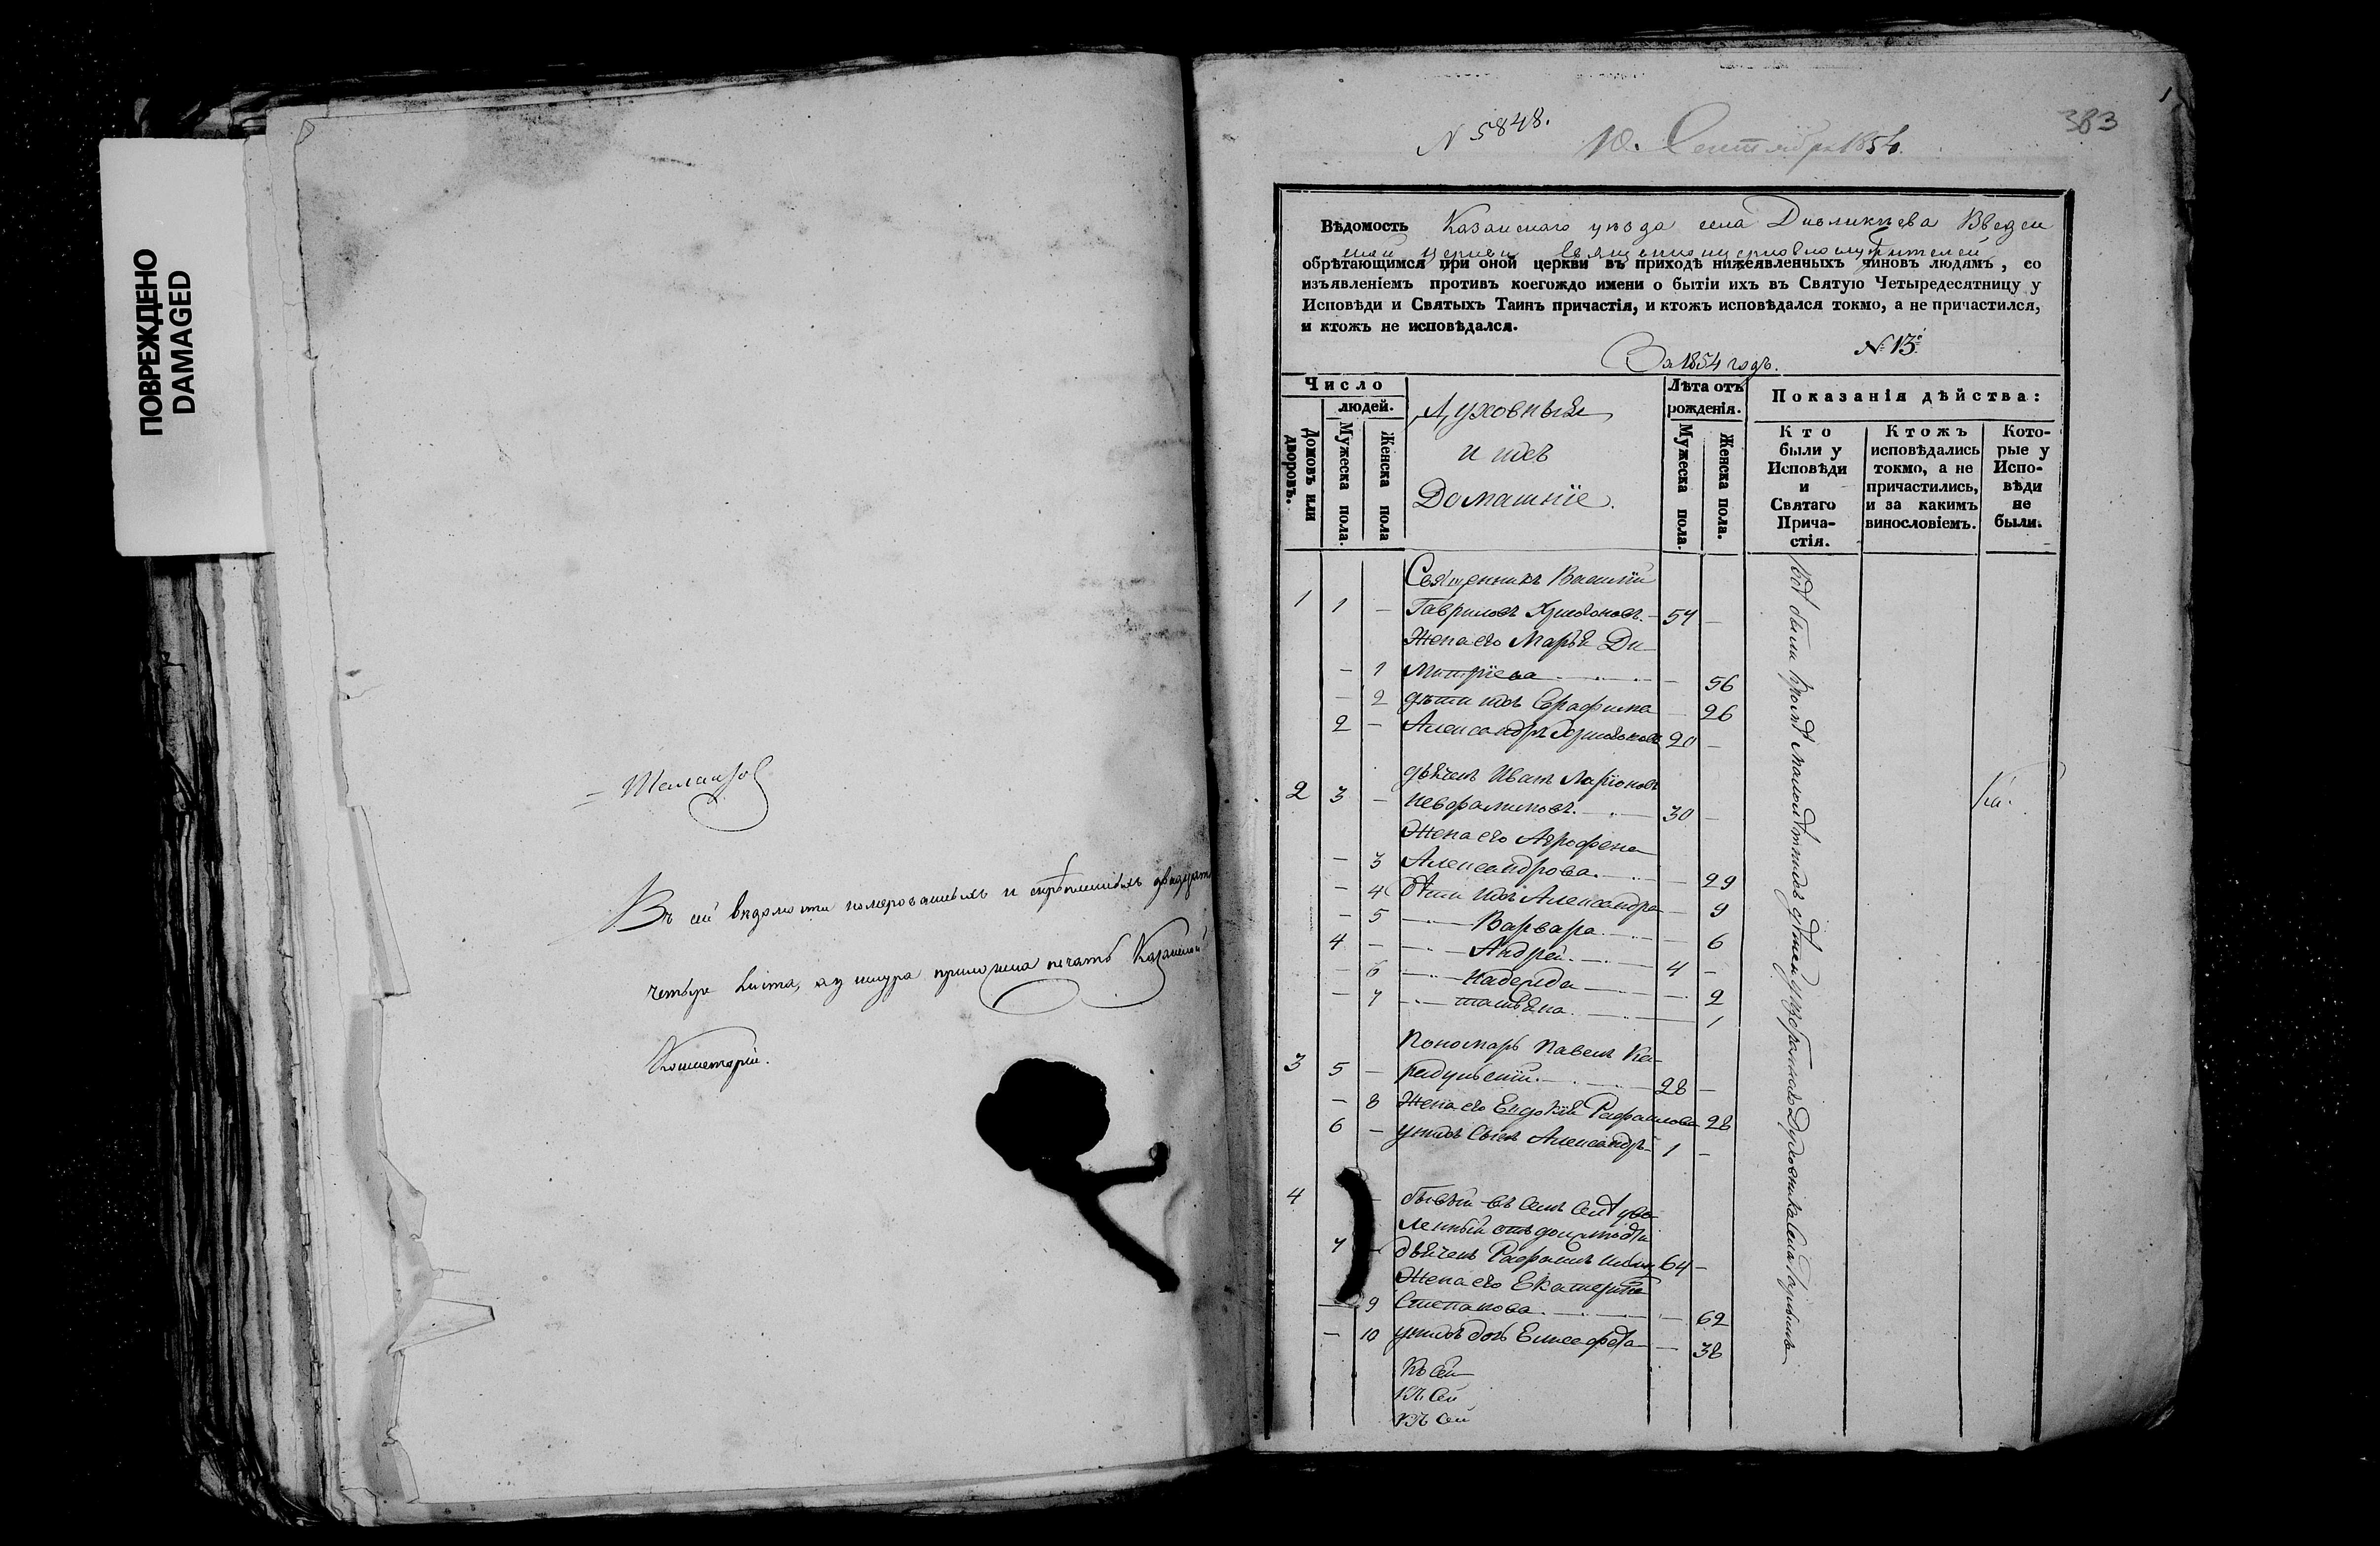 ПОВРЕЖДЕНО
DAMAGED
Въ сей вѣдомости номерованныхъ и скрѣпленныхъ двадцать
четыре листа, а у шнура приложена печать Казанской
Консисторіи.
383
1
N 5848.
10. Сентября 1854.
Вѣдомость Казанскаго уѣзда села Дивликѣева Введен
ской церкви священноцерковнослужителей
обрѣтающимся при оной церкви въ приходѣ нижеявленныхъ чиновъ людямъ, со
изъявленіемъ противъ коегождо имени о бытіи ихъ въ Святую Четыредесятницу у
Исповѣди и Святыхъ Таинъ причастія, и ктожъ исповѣдался токмо, а не причастился,
и ктожъ не исповѣдался.
За 1854 годъ. № 13.
Число
людей.
Домовъ или дворовъ.
Мужеска пола.
Женска пола
Духовныя
и ихъ
Домашніе.
Лѣта отъ
рожденія.
Мужеска пола.
Женска пола.
Показанія дѣйства:
Кто
были у
Исповѣди
и
Святаго
Прича-
стія.
Ктожъ
исповѣдались
токмо, а не
причастились,
и за какимъ
винословіемъ.
Кото-
рые у
Испо-
вѣди
не
были.
Священникъ Василій
1 1 — Гавриловъ — 54 —
Жена его Марья Ди-
— 1 митріева — 56
— 2 дѣти ихъ Серафима — 26
2 — Александръ 20 —
дьячекъ Иванъ Ларіоновъ
2 3 — 30 —
Жена его Агрофена
— 3 Александрова. — 29
— 4 дѣти ихъ Александра — 9
— 5 Варвара — 6
4 — Андрей 4 —
— 6 Надежда — 2
— 7 татьяна 1
Пономарь Павелъ Ка-
3 5 — 28 —
— 8 Жена его Евдокія Рафаилова 28
6 — у нихъ сынъ Александръ 1 —
4 — бывый въ семъ селѣ уво
ленный отъ должности
7 — дьячекъ Рафаилъ 64 —
Жена его Екатерина
— 9 Степанова — 62
— 10 у нихъ дочь Елисафета — 38
Къ сей
Къ сей
Къ сей